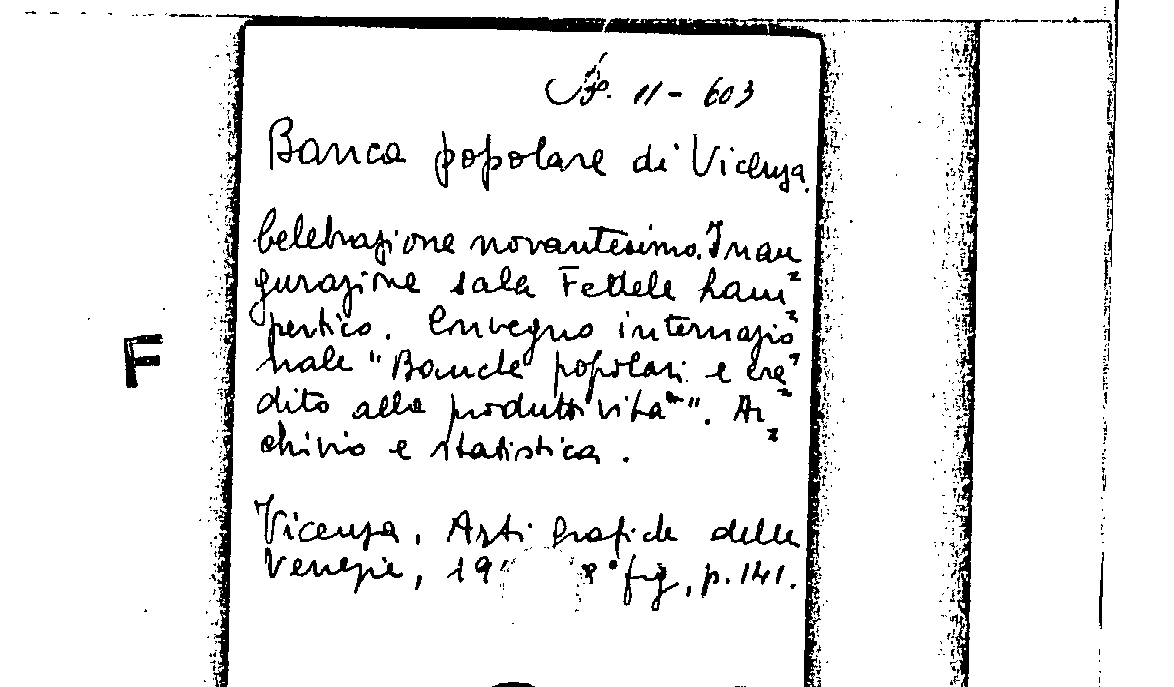 11 - 603
Banca popolare di Vicenza.
Celebrazione novantesimo. Inau
gurazione sala Fedele Lam=
pertico. Convegno internazio
nale "Banche popolari e cre=
dito alla produttività". Ar=
chivio e statistica.
F
Vicenza, Arti Grafiche delle
Venezie, 19 8° fig., p. 141.